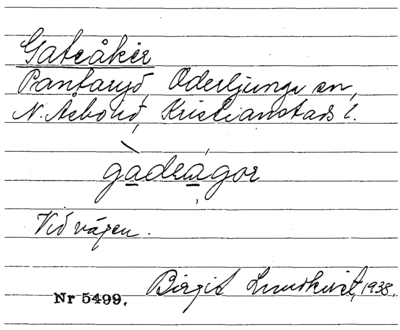 Gateåker
Pantaryd, Oderljunga sn,
N. Åsbo hd, Kristianstads l.
gadrågor
Vid vägen.
Birgit Lundkvist, 1938.
Nr 5499.